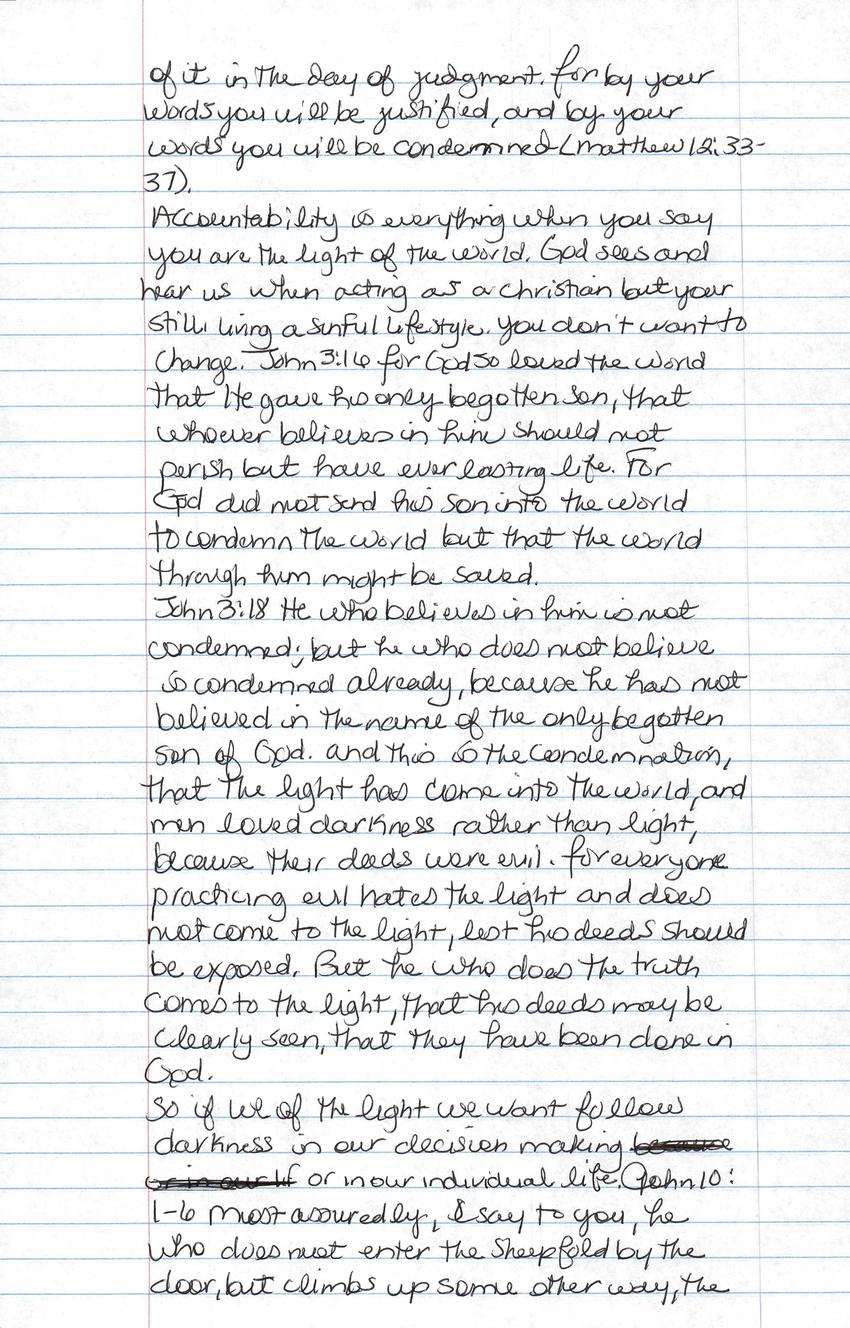 of it in the day of judgment. for by your
words you will be justified, and by your
words you will be condemned (matthew 12:33-
37).
Accountability is everything when you say
you are the light of the world. God sees and
hear us when acting as a christian but your
still living a sinful lifestyle. you don't want to
change. John 3:16 for God so loved the world
that He gave his only begotten son, that
whoever believes in him should not
perish but have everlasting life. For
God did not send his son into the world
to condemn the world but that the world
through him might be saved.
John 3:18 He who believes in him is not
condemned; but he who does not believe
is condemned already, because he has not
believed in the name of the only begotten
son of God. and this is the condemnation,
that the light has come into the world, and
men loved darkness rather than light,
because their deeds were evil. for everyone
practicing evil hates the light and does
not come to the light, lest his deeds should
be exposed. But he who does the truth
comes to the light, that his deeds may be
clearly seen, that they have been done in
God.
So if we of the light we want follow
darkness in our decision making because
or in our lif or in our individual life. John 10:
1-6 most assuredly, I say to you, he
who does not enter the sheepfold by the
door, but climbs up some other way, the